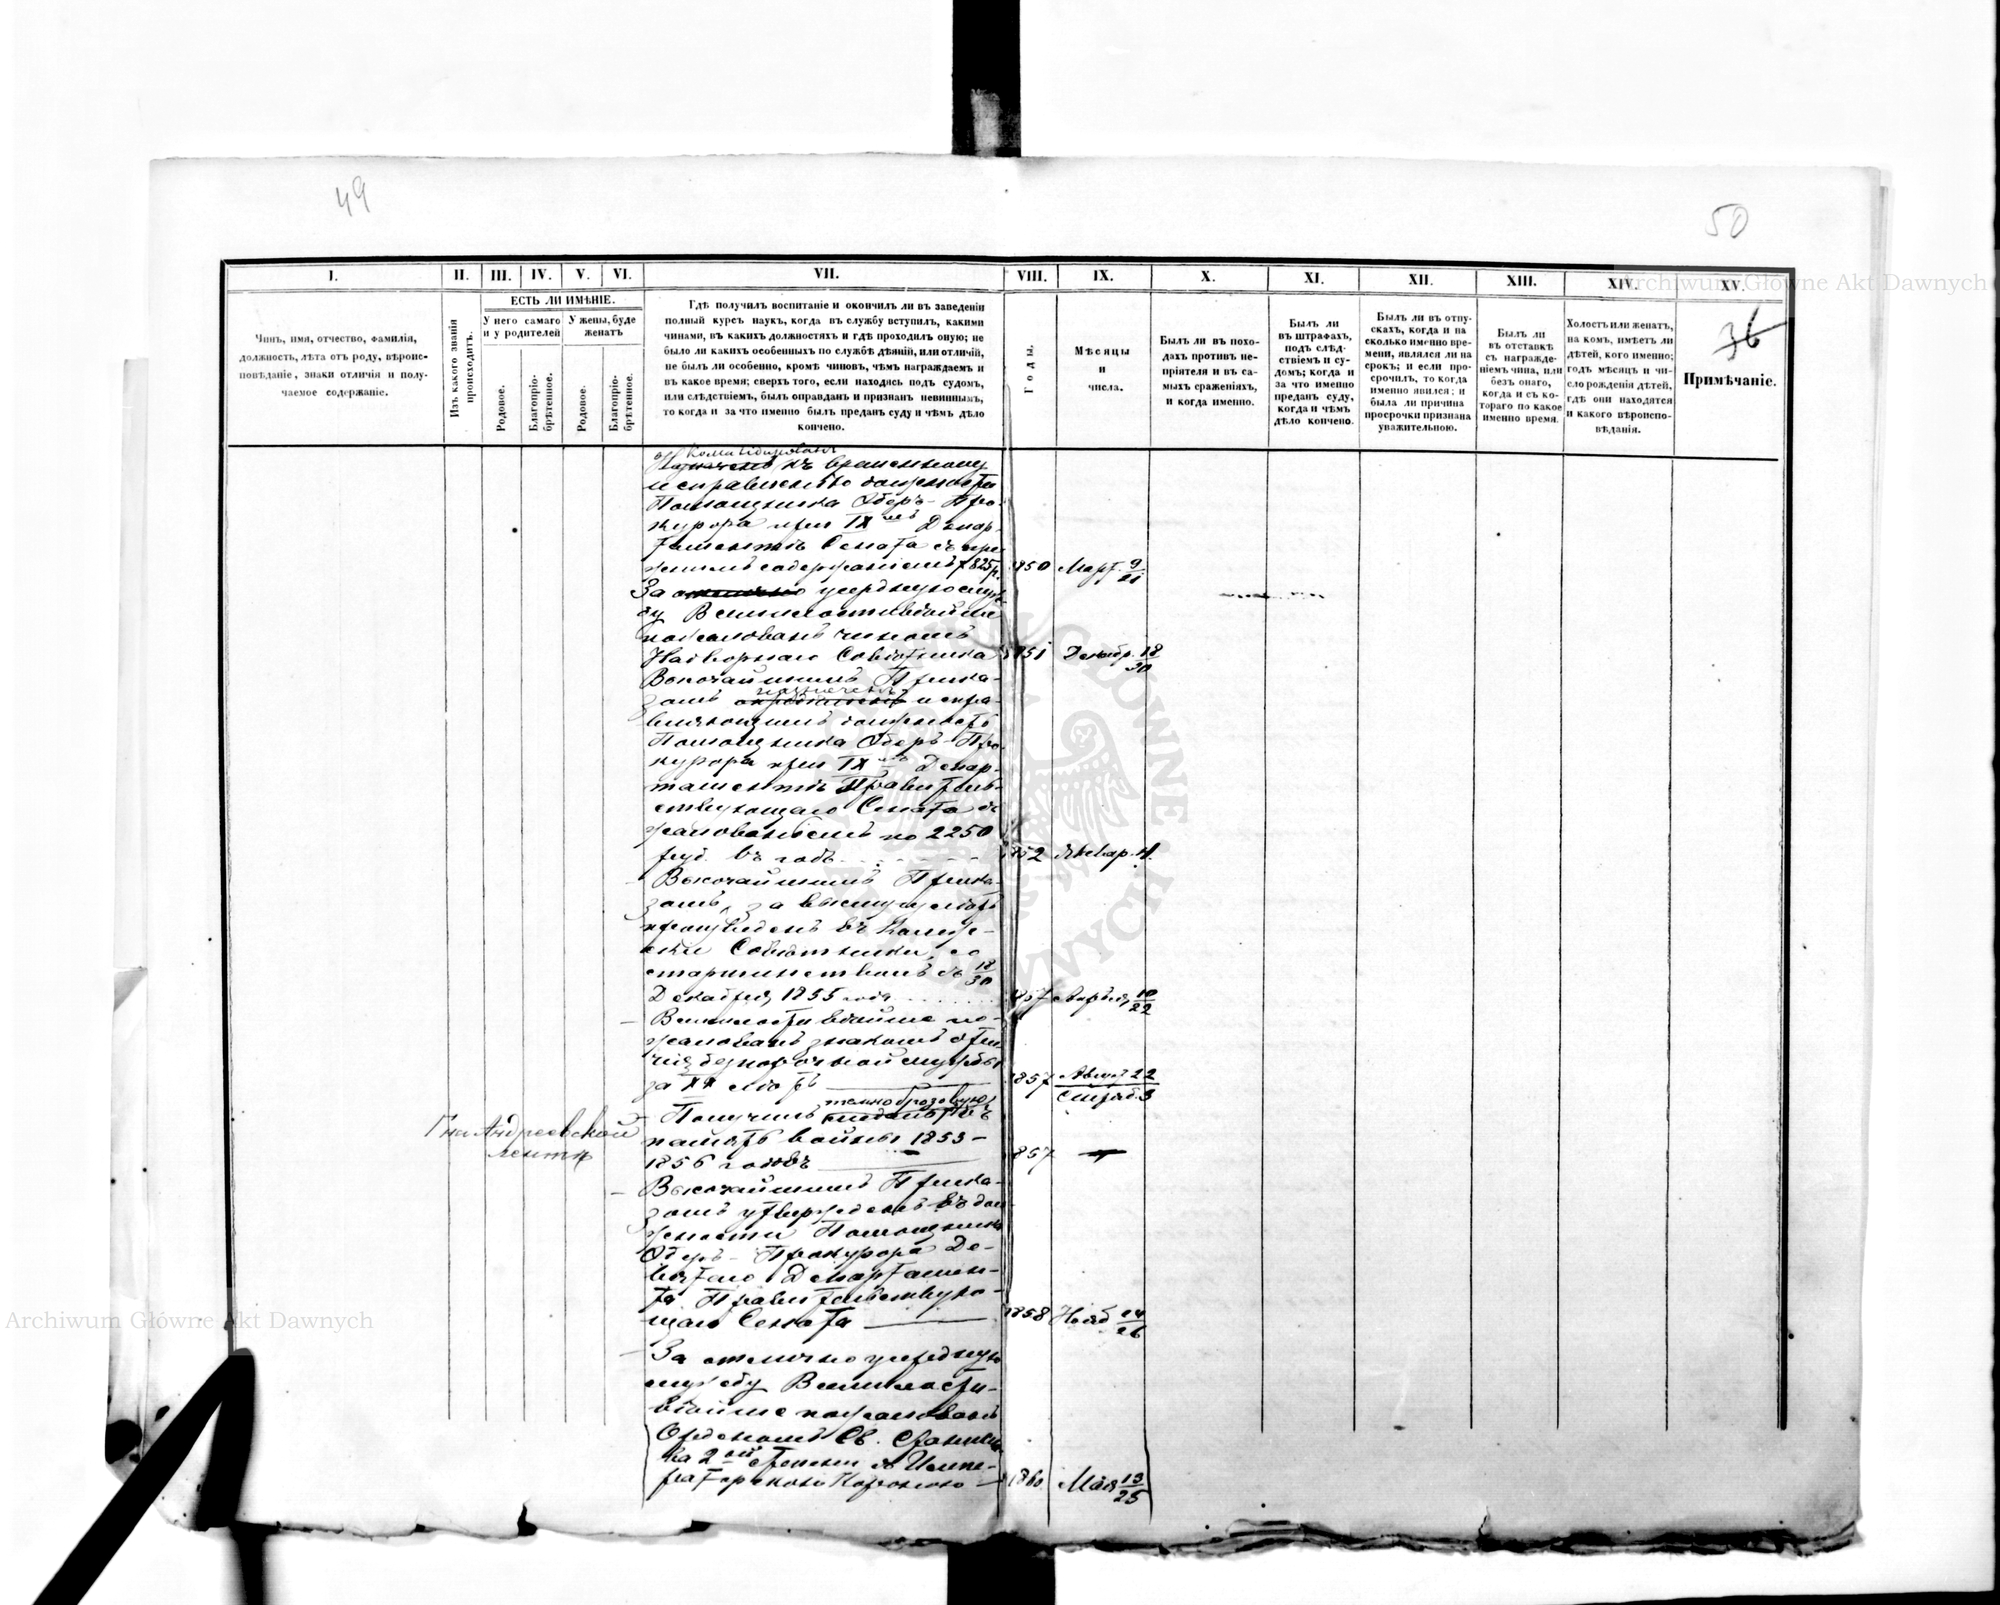 49
50
I.
II.
III.
IV.
V.
VI.
VII.
VIII.
IX.
X.
XI.
XII.
XIII.
XIV.
XV.
Чинъ, имя, отчество, фамилія,
должность, лѣта отъ роду, вѣроис-
повѣданіе, знаки отличія и полу-
чаемое содержаніе.
Изъ какого званія
происходитъ.
ЕСТЬ ЛИ ИМѢНІЕ.
У него самаго
и у родителей
У жены, буде
женатъ
Родовое.
Благопріо-
брѣтенное.
Родовое.
Благопріо-
брѣтенное.
Гдѣ получилъ воспитаніе и окончилъ ли въ заведеніи
полный курсъ наукъ, когда въ службу вступилъ, какими
чинами, въ какихъ должностяхъ и гдѣ проходилъ оную; не
было ли какихъ особенныхъ по службѣ дѣяній, или отличій,
не былъ ли особенно, кромѣ чиновъ, чѣмъ награждаемъ и
въ какое время; сверхъ того, если находясь подъ судомъ,
или слѣдствіемъ, былъ оправданъ и признанъ невиннымъ,
то когда и за что именно былъ преданъ суду и чѣмъ дѣло
кончено.
Годы.
Мѣсяцы
и
числа.
Былъ ли въ похо-
дахъ противъ не-
пріятеля и въ са-
мыхъ сраженіяхъ,
и когда именно.
Былъ ли
въ штрафахъ,
подъ слѣд-
ствіемъ и су-
домъ; когда и
за что именно
преданъ суду,
когда и чѣмъ
дѣло кончено.
Былъ ли въ отпу-
скахъ, когда и на
сколько именно вре-
мени, являлся ли на
срокъ; и если про-
срочилъ, то когда
именно явился; и
была ли причина
просрочки признана
уважительною.
Былъ ли
въ отставкѣ
съ награжде-
ніемъ чина, или
безъ онаго,
когда и съ ко-
тораго по какое
именно время.
Холостъ или женатъ,
на комъ, имѣетъ ли
дѣтей, кого именно;
годъ мѣсяцъ и чи-
сло рожденія дѣтей,
гдѣ они находятся
и какого вѣроиспо-
вѣданія.
36
Примѣчаніе.
Командированъ
къ временному
исправленію должности
Помощника Оберъ-Про-
курора при IXмъ Депар-
таментѣ Сената съ пре-
жнимъ содержаніемъ 825 р. 1850 Март. 9/21
За отлично усердную служ-
бу Всемилостивѣйше
пожалованъ чиномъ
Надворнаго Совѣтника 1851 Декабр. 18/30
Высочайшимъ Прика-
назначенъ
зомъ опредѣленъ испра-
вляющимъ должность
Помощника Оберъ-Про-
курора при IXмъ Депар-
таментѣ Правитель-
ствующаго Сената съ
жалованіемъ по 2250
руб. въ годъ 1852 Январ. 4.
Высочайшимъ Прика-
зомъ, за выслугу лѣтъ
произведенъ въ Коллеж-
скіе Совѣтники, со
старшинствомъ съ 18/30
Декабря 1855 года 1857 Апрѣля 10/22
Всемилостивѣйше по-
жалованъ знакомъ отли-
чія безпорочной службы
за XX лѣтъ 1857 Август 22/Сентяб. 3
темнобронзовую
Получилъ медаль въ
На Андреевской
лентѣ
память войны 1853-
1856 годовъ 1857
Высочайшимъ Прика-
зомъ утвержденъ въ дол-
жности Помощника
Оберъ-Прокурора Де-
вятаго Департамен-
та Правительствую-
щаго Сената 1858 Нояб 14/26
За отлично усердную
службу Всемилости-
вѣйше пожалованъ
Орденомъ Св. Станисла-
ва 2ой степени съ Импе-
раторскою Короною 1860 Мая 13/25
Archiwum Główne Akt Dawnych
Archiwum Główne Akt Dawnych